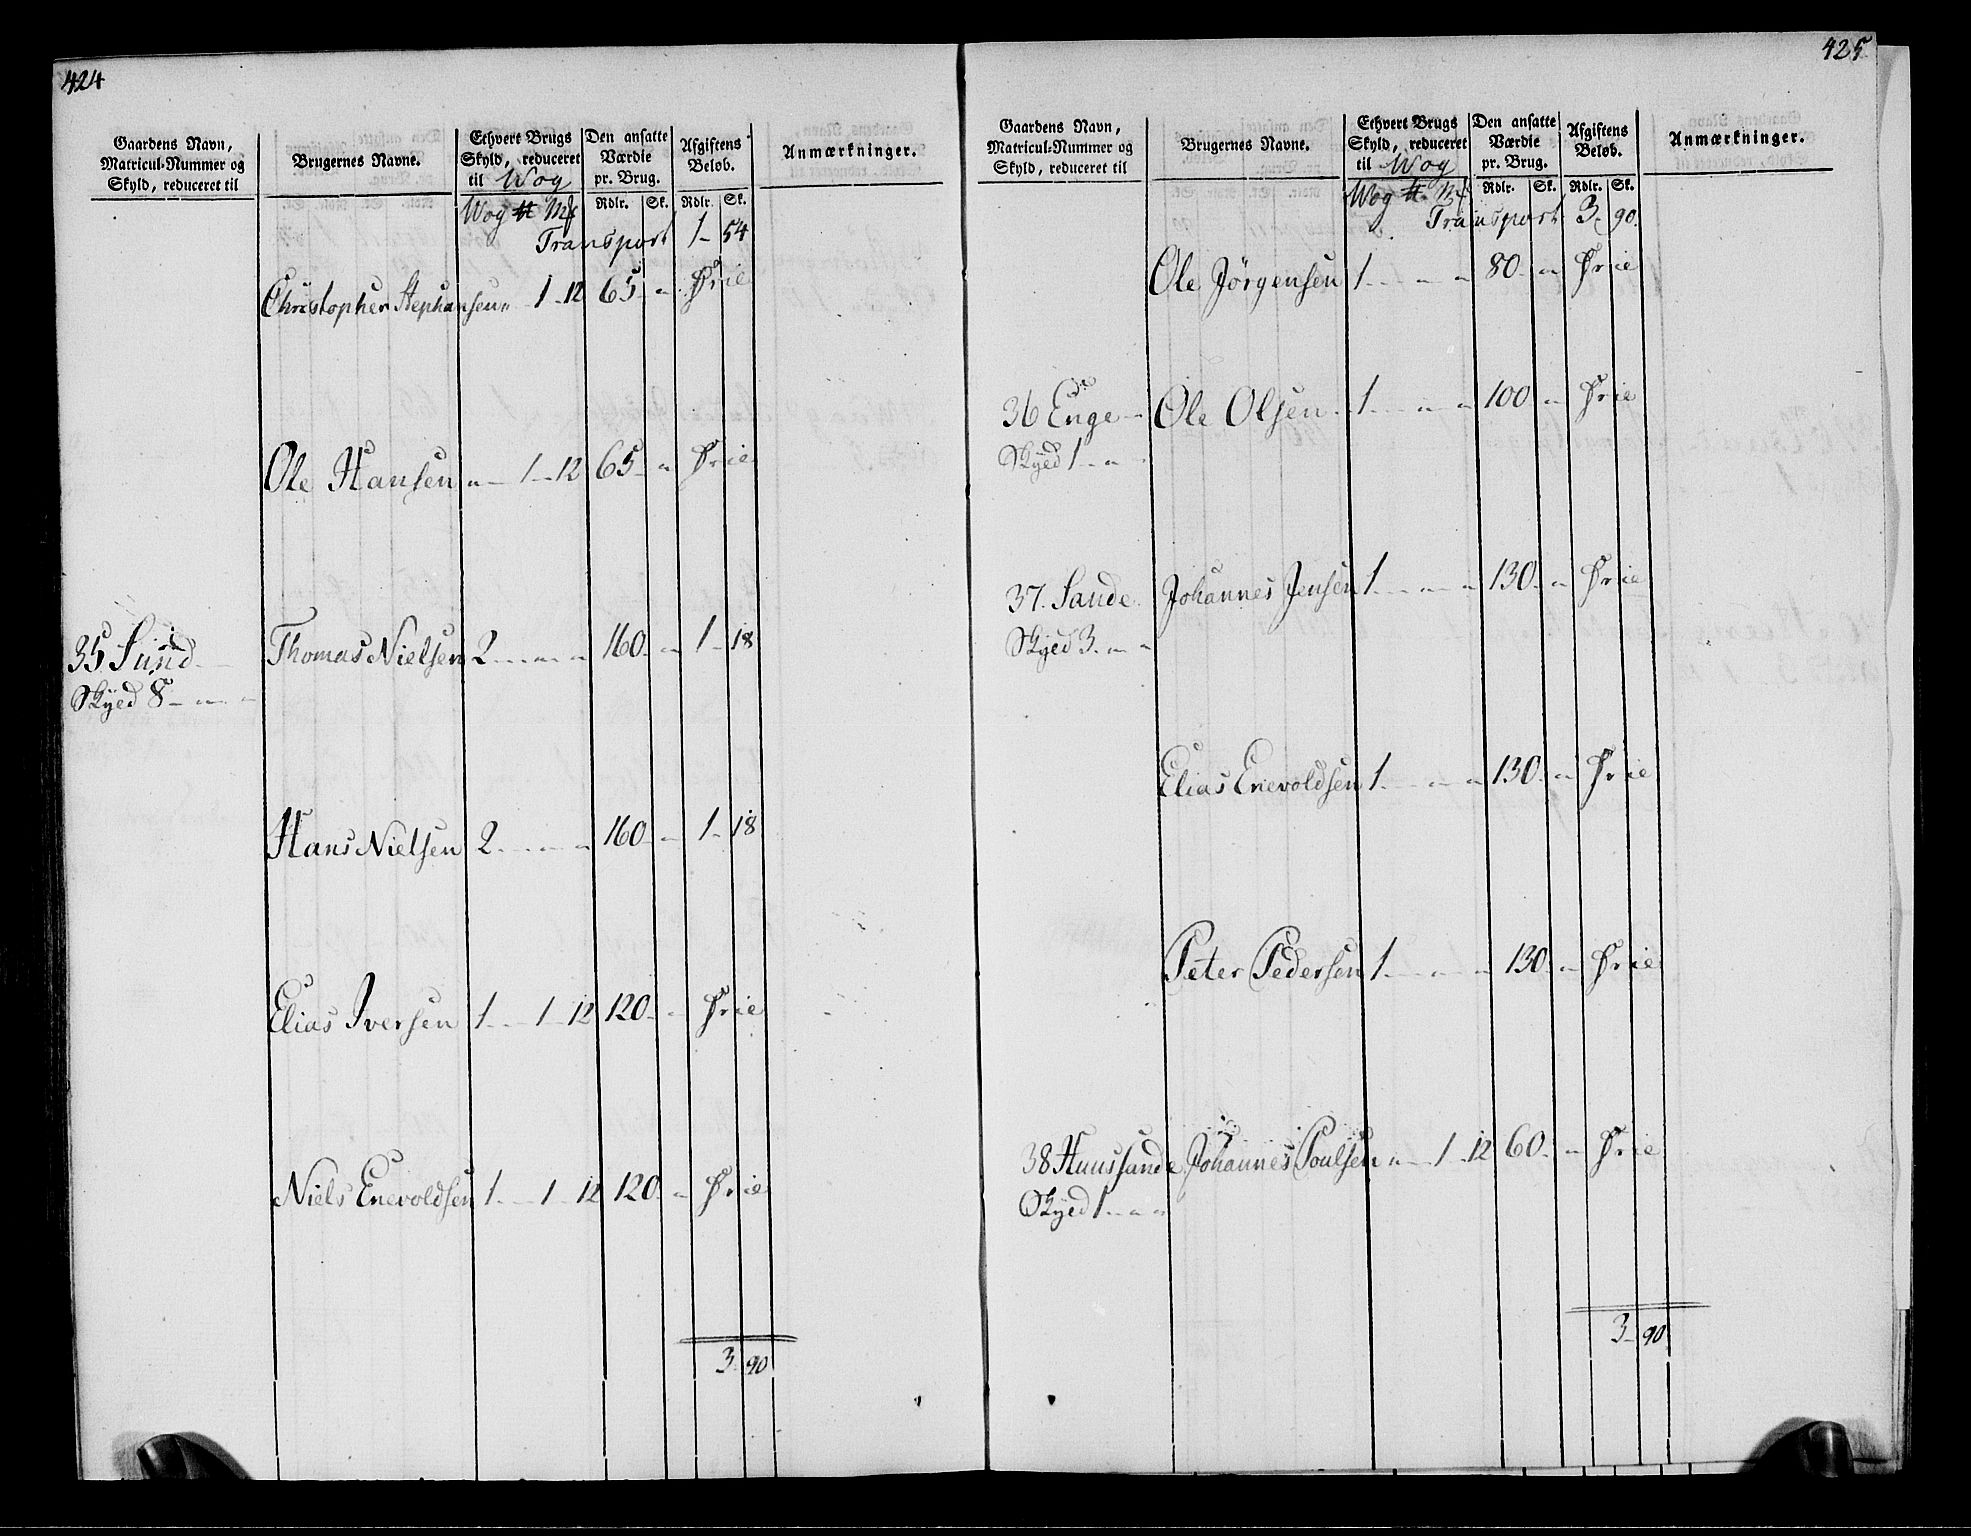 424
Gaardens Navn, Matricul-Nummer og Skyld, reduceret til
Brugernes Navne.
Ethvert Brugs Skyld, reduceret til Wog
Den ansatte Værdie pr. Brug.
Afgiftens Beløb.
Anmærkninger.
Wog ℔ Mk Rdlr. Sk. Rdlr. Sk.
Transport 1 - 54
Christopher Stephansen " - 1 - 12 65 - " Frie
Ole Hansen " - 1 - 12 65 - " Frie
35 Sund - Thomas Nielsen 2 - " - " 160 - " 1 - 18
Skyed 8 - " - "
Hans Nielsen 2 - " - " 160 - " 1 - 18
Elias Iversen 1 - 1 - 12 120 - " Frie
Niels Enevoldsen 1 - 1 - 12 120 - " Frie
3 - 90
425
Gaardens Navn, Matricul-Nummer og Skyld, reduceret til
Brugernes Navne.
Ethvert Brugs Skyld, reduceret til Wog
Den ansatte Værdie pr. Brug.
Afgiftens Beløb.
Anmærkninger.
Wog ℔ Mk Rdlr. Sk. Rdlr. Sk.
Transport 3 - 90.
Ole Jörgensen 1 - " - " 80 - " Frie
36 Enge - Ole Olsen 1 - " - " 100 - " Frie
Skyed 1 - " - "
37. Sande Johannes Jensen 1 - " - " 130 - " Frie
Skyed 3 - " - "
Elias Enevoldsen 1 - " - " 130 - " Frie
Peter Pedersen 1 - " - " 130 - " Frie
38 Huussande Johannes Poulsen " - 1 - 12 60 - " Frie
Skyed 1 - " - "
3 - 90